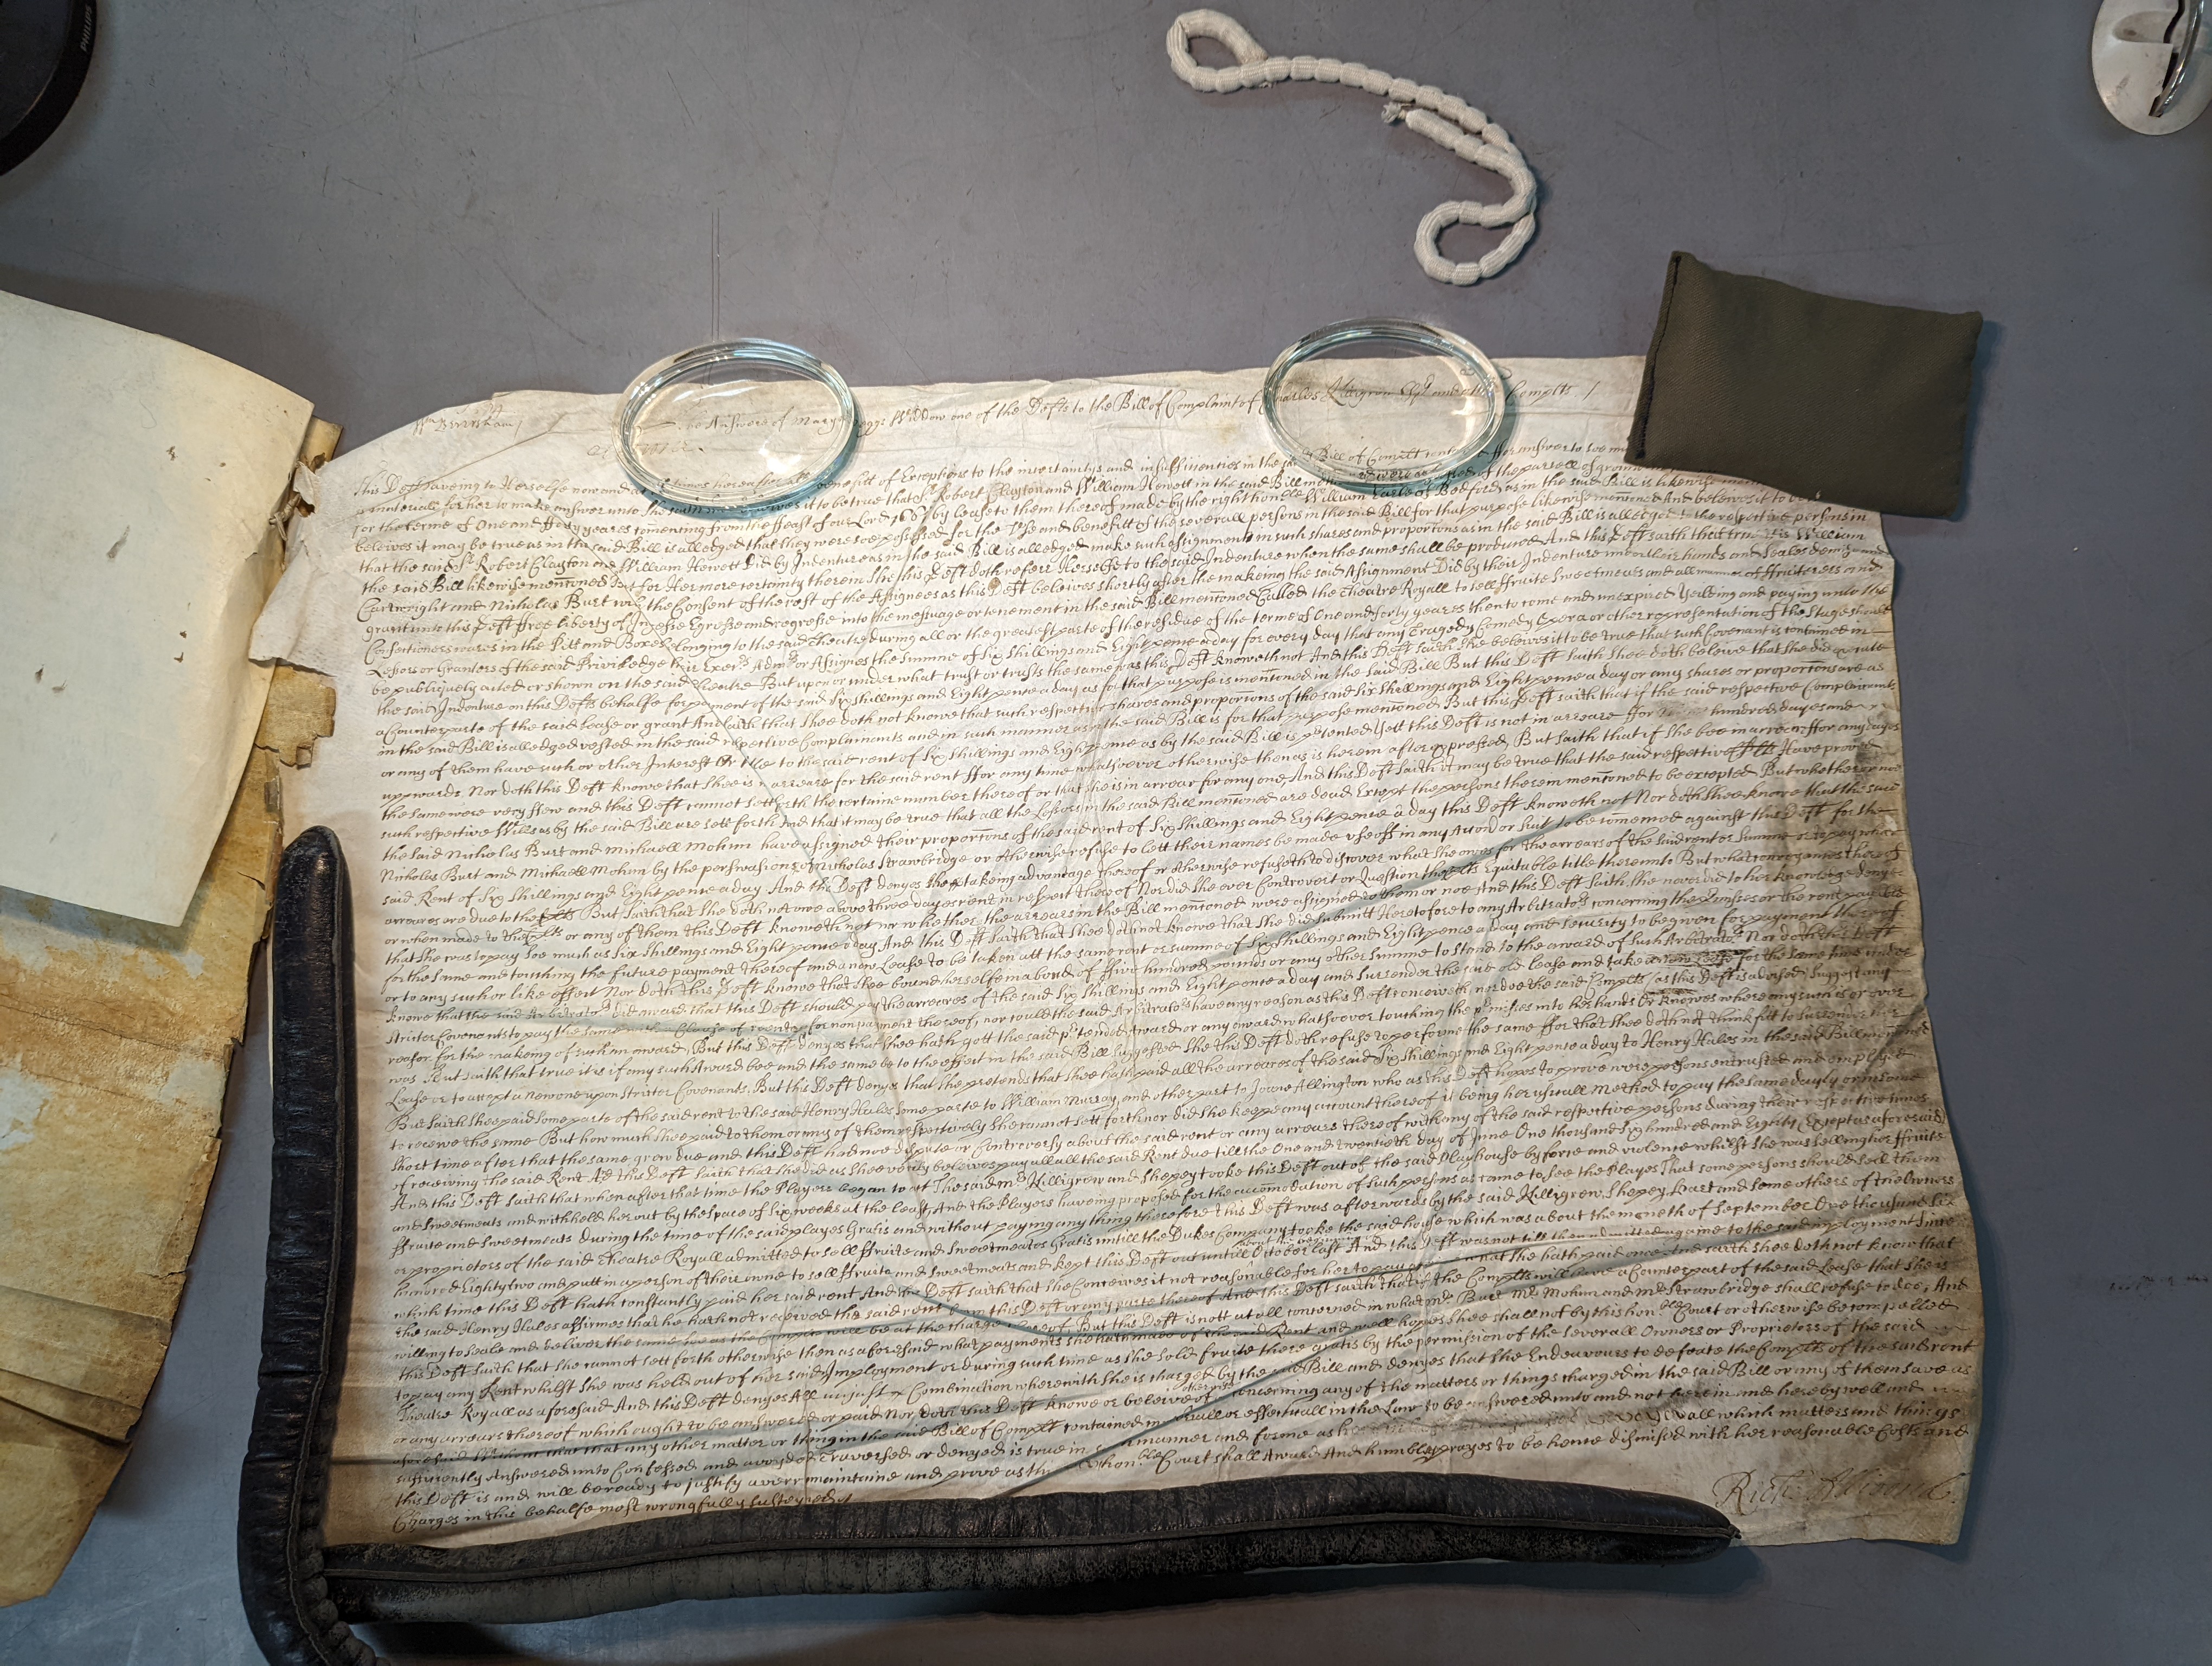 PHILIPS
The Answere of Mary Meggs Widdow one of the Defts to the Bill of Complaint of Charles Killigrew Esqr and others Complts
This Deft saveing to Herselfe now and att all times hereafter all benefitt of Exceptions to the incertaintys and insufficienties in the said Bill of Complt for answer to soe
materiall for her to make answer unto she believes it to be true that Sr. Robert Clayton and William Hewett in the said Bill of the parcell of ground
for the terme of One and fforty yeares comencing from the ffeast of our Lord 1667 by lease to them thereof made by the right honble William Earle of Bedford, as in the said Bill is likewise
beleives it may be true as in the said Bill is alledged that they were soe possessed for the Use and benefitt of the severall persons in the said Bill for that purpose likewise menconed And beleives it to
that the said Sr. Robert Clayton and William Hewett Did by Indenture as in the said Bill is alledged make such assignment in such shares and proportons as in the said Bill is alledged to the respective persons in
the said Bill likewise menconed But for Her more certainty therein She this Deft doth referr Herselfe to the said Indenture when the same shall be produced And this Deft saith that true it is William
Cartwright and Nicholas Burt with the Consent of the rest of the Assignees as this Deft beleives shortly after the makeing the said Assignment Did by their Indenture under their hands and Seales demise and
graunt unto this Deft free liberty of Ingresse Egresse and regresse into the messuage or tenement in the said Bill menconed Called the Theatre Royall to sell ffruite Sweetmeates and all manner of ffruiterers and
Confectioners wares in the Pitt and Boxes belonging to the said Theatre during all or the greatest parte of the residue of the terme of One and forty yeares then to come and unexpired Yeilding and paying unto the
Lessors or Grantees of the said Priviledge their Execrs. Admrs. or Assignes the Summe of Six Shillings and Eight pence a day for every day that any Tragedy Comedy Opera or other representation of the Stage should
be publiquely acted or shown on the said Theatre But upon or under what trust or trusts the same was this Deft knoweth not And this Deft saith She beleives it to be true that such Covenant is contained in
the said Indenture on this Defts behalfe for payment of the said Six Shillings and Eight pence a day as for that purpose is mentioned in the said Bill But this Deft saith Shee doth beleive that she did execute
a Counterparte of the said Lease or grant And saith that Shee doth not know that such respective shares and proportons of the said Six Shillings and Eight pence a day or any shares or proportons are as
in the said Bill is alledged vested in the said respective Complainants and in such manner as in the said Bill is for that purpose menconed But this Deft saith that if the said respective Complainants
or any of them have such or other Interest or title to the said rent of Six Shillings and Eight pence as by the said Bill is pretended Yett this Deft is not in arreare for hundred dayes and
upwards. Nor doth this Deft know that Shee is in arreare for the said rent ffor any time whatsoever otherwise then as is herein after expressed, But saith that if she bee in arreare for any dayes
the same were very ffew and this Deft cannot sett forth the certaine number thereof or that she is in arrear for any one And this Deft saith it may be true that the said respective Have proved
such respective Wills as by the said Bill are sett forth And that it may be true that all the Lessors in the said Bill menconed are dead Except the persons therein menconed to be excepted But whether or noe
the said Nicholas Burt and Michaell Mohun have assigned their proportons of the said rent of Six Shillings and Eight pence a day this Deft knoweth not Nor doth shee know that the said
Nicholas Burt and Michaell Mohun by the perswasion of Nicholas Strawbridge or otherwise refuse to lett their names be made use of in any Accon or Suit to be comenced against this Deft for the
said Rent of Six Shillings and Eight pence a day And this Deft denyes the takeing advantage thereof or otherwise refuseth to discover what she owes for the arrears of the said rent or Summe
arreares are due to the But saith that She doth not owe above three dayes rent in respect thereof Nor did She ever Controvert or Question the Equitable title thereunto But what conveyances thereof
or when made to the or any of them this Deft knoweth not nor whether the arrears in the Bill menconed were assigned to them or noe And this Deft saith She never did to her knowledge denye
that she was to pay soe much as Six Shillings and Eight pence a day And this Deft saith that Shee doth not know that She did submitt Heretofore to any Arbitrators concerning the
for the same and touching the future payment thereof and a new Lease to be taken att the same rent or summe of Six Shillings and Eight pence a day and security to be given for payment thereof
or to any such or like effect Nor doth this Deft know that Shee bound herselfe in a bond of ffive hundred pounds or any other Summe to stand to the award of such Arbitrators Nor doth this Deft
know that the said Arbitrators did award that this Deft should pay the arreares of the said Six Shillings and Eight pence a day and surrender the said old lease and take
Stricter Covenants to pay the same with a Clause of reentry for nonpayment thereof, nor could the said Arbitrators have any reason as this Deft conceiveth nor doe the said Complts (as this Deft is advised) suggest any
reason for the makeing of such an award, But this Deft denyes that Shee hath gott the said pretended award or any award whatsoever touching the premises into her hands Or knowes where any such is or ever
was But saith that true it is if any such award bee and the same be to the effect in the said Bill suggested She this Deft doth refuse to performe the same ffor that Shee doth not think fitt to surrender her
Lease or to accept a new one upon Stricter Covenants. But this Deft denyes that She pretends that Shee hath paid all the arreares of the said Six Shillings and Eight pence a day to Henry Hales in the said Bill menconed
But saith Shee paid some parte of the said rent to the said Henry Hales some parte to William Murray, and other part to Joane Allington who as this Deft hopes to prove were persons entrusted and employed
to receive the same But how much Shee paid to them or any of them respectively She cannot sett forth nor did She keepe any account thereof it being her usuall Method to pay the same dayly or in some
short time after that the same grew due and this Deft had noe dispute or Controversy about the said rent or any arrears thereof with any of the said respective persons during their respective times
of receiveing the said Rent And this Deft saith that she did as Shee verily beleives pay all the said Rent due till the One and twentieth day of June One thousand Six hundred and Eighty Except as aforesaid
And this Deft saith that when after that time the Players began to act The said Mr. Killigrew and Shepey tooke this Deft out of the said Playhouse by force and violence whilst She was selling her ffruite
and Sweetmeats and withheld her out by the space of Six weeks at the least, And the Players haveing proposed for the accommodation of such persons as came to see the Playes That some persons should sell them
ffruite and Sweetmeats during the time of the said playes Gratis and without paying any thing therefore this Deft was afterwards by the said Killigrew, Shepey, Hart and some others of the Owners
or proprietors of the said Theatre Royall admitted to sell ffruite and Sweetmeates Gratis untill the Dukes Company tooke the said house which was about the moneth of September One thousand Six
hundred Eighty two and putt in a person of their owne to sell ffruite and Sweetmeats and kept this Deft out untill October last And this Deft was not till then admitted againe to the said imployment Since
which time this Deft hath constantly paid her said rent And this Deft saith that She Conceives it not reasonable for her to pay what She hath paid once And saith Shee doth not know that
the said Henry Hales affirmes that he hath not received the said rent from this Deft or any parte thereof And this Deft saith that if the Complts will have a Counterpart of the said Lease that She is
willing to Seale and deliver the same soe as the Complts will be at the charge thereof But this Deft is nott at all concerned in what Mr. Burt Mr. Mohun and Mr. Strawbridge shall refuse to doe, And
this Deft saith that she cannot sett forth otherwise then as aforesaid what payments she hath made of the said Rent and well hopes Shee shall not by this honble Court or otherwise be compelled
to pay any Rent whilst She was held out of her said Imployment or during such time as She sold fruite there gratis by the permission of the severall Owners or Proprietors of the said
Theatre Royall as aforesaid And this Deft denyes All unjust Combination wherewith She is charged by the said Bill and denyes that She Endeavours to defeate the Complts of the said rent
or any arreares thereof which ought to be answered or paid Nor doth this Deft know or beleive of concerning any of the matters or things charged in the said Bill or any of them save as
aforesaid Without that that any other matter or thing in the said Bill of Complt contained materiall or effectuall in the Law to be answered unto and not herein and hereby well and
sufficiently Answered unto Confessed and avoyded Traversed or denyed is true in such manner and forme as all which matters and things
this Deft is and will be ready to justify averr maintaine and prove as this honble Court shall Award And humbly prayes to be hence dismissed with her reasonable Costs and
Charges in this behalfe most wrongfully susteyned